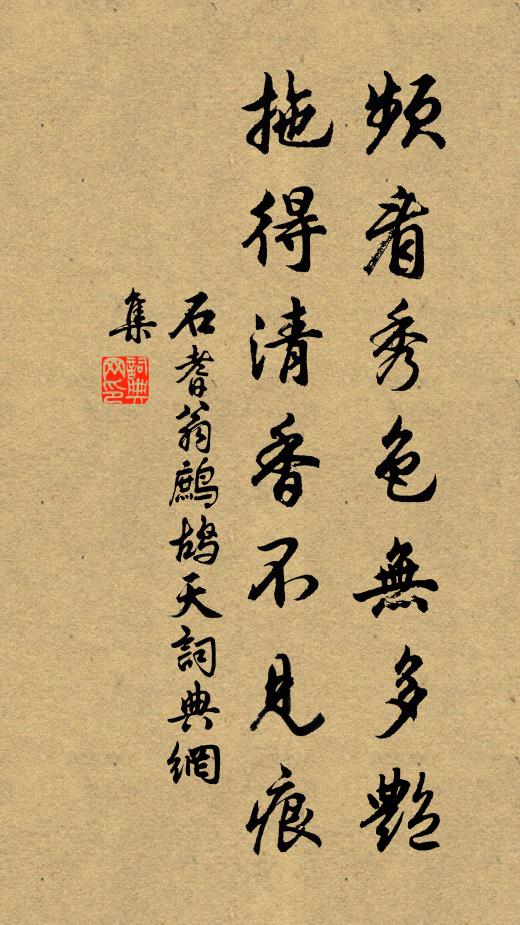 頻看秀色無多艷
拖得清香不見痕
石耆翁鷓鴣天詞典網
集
詞典網印